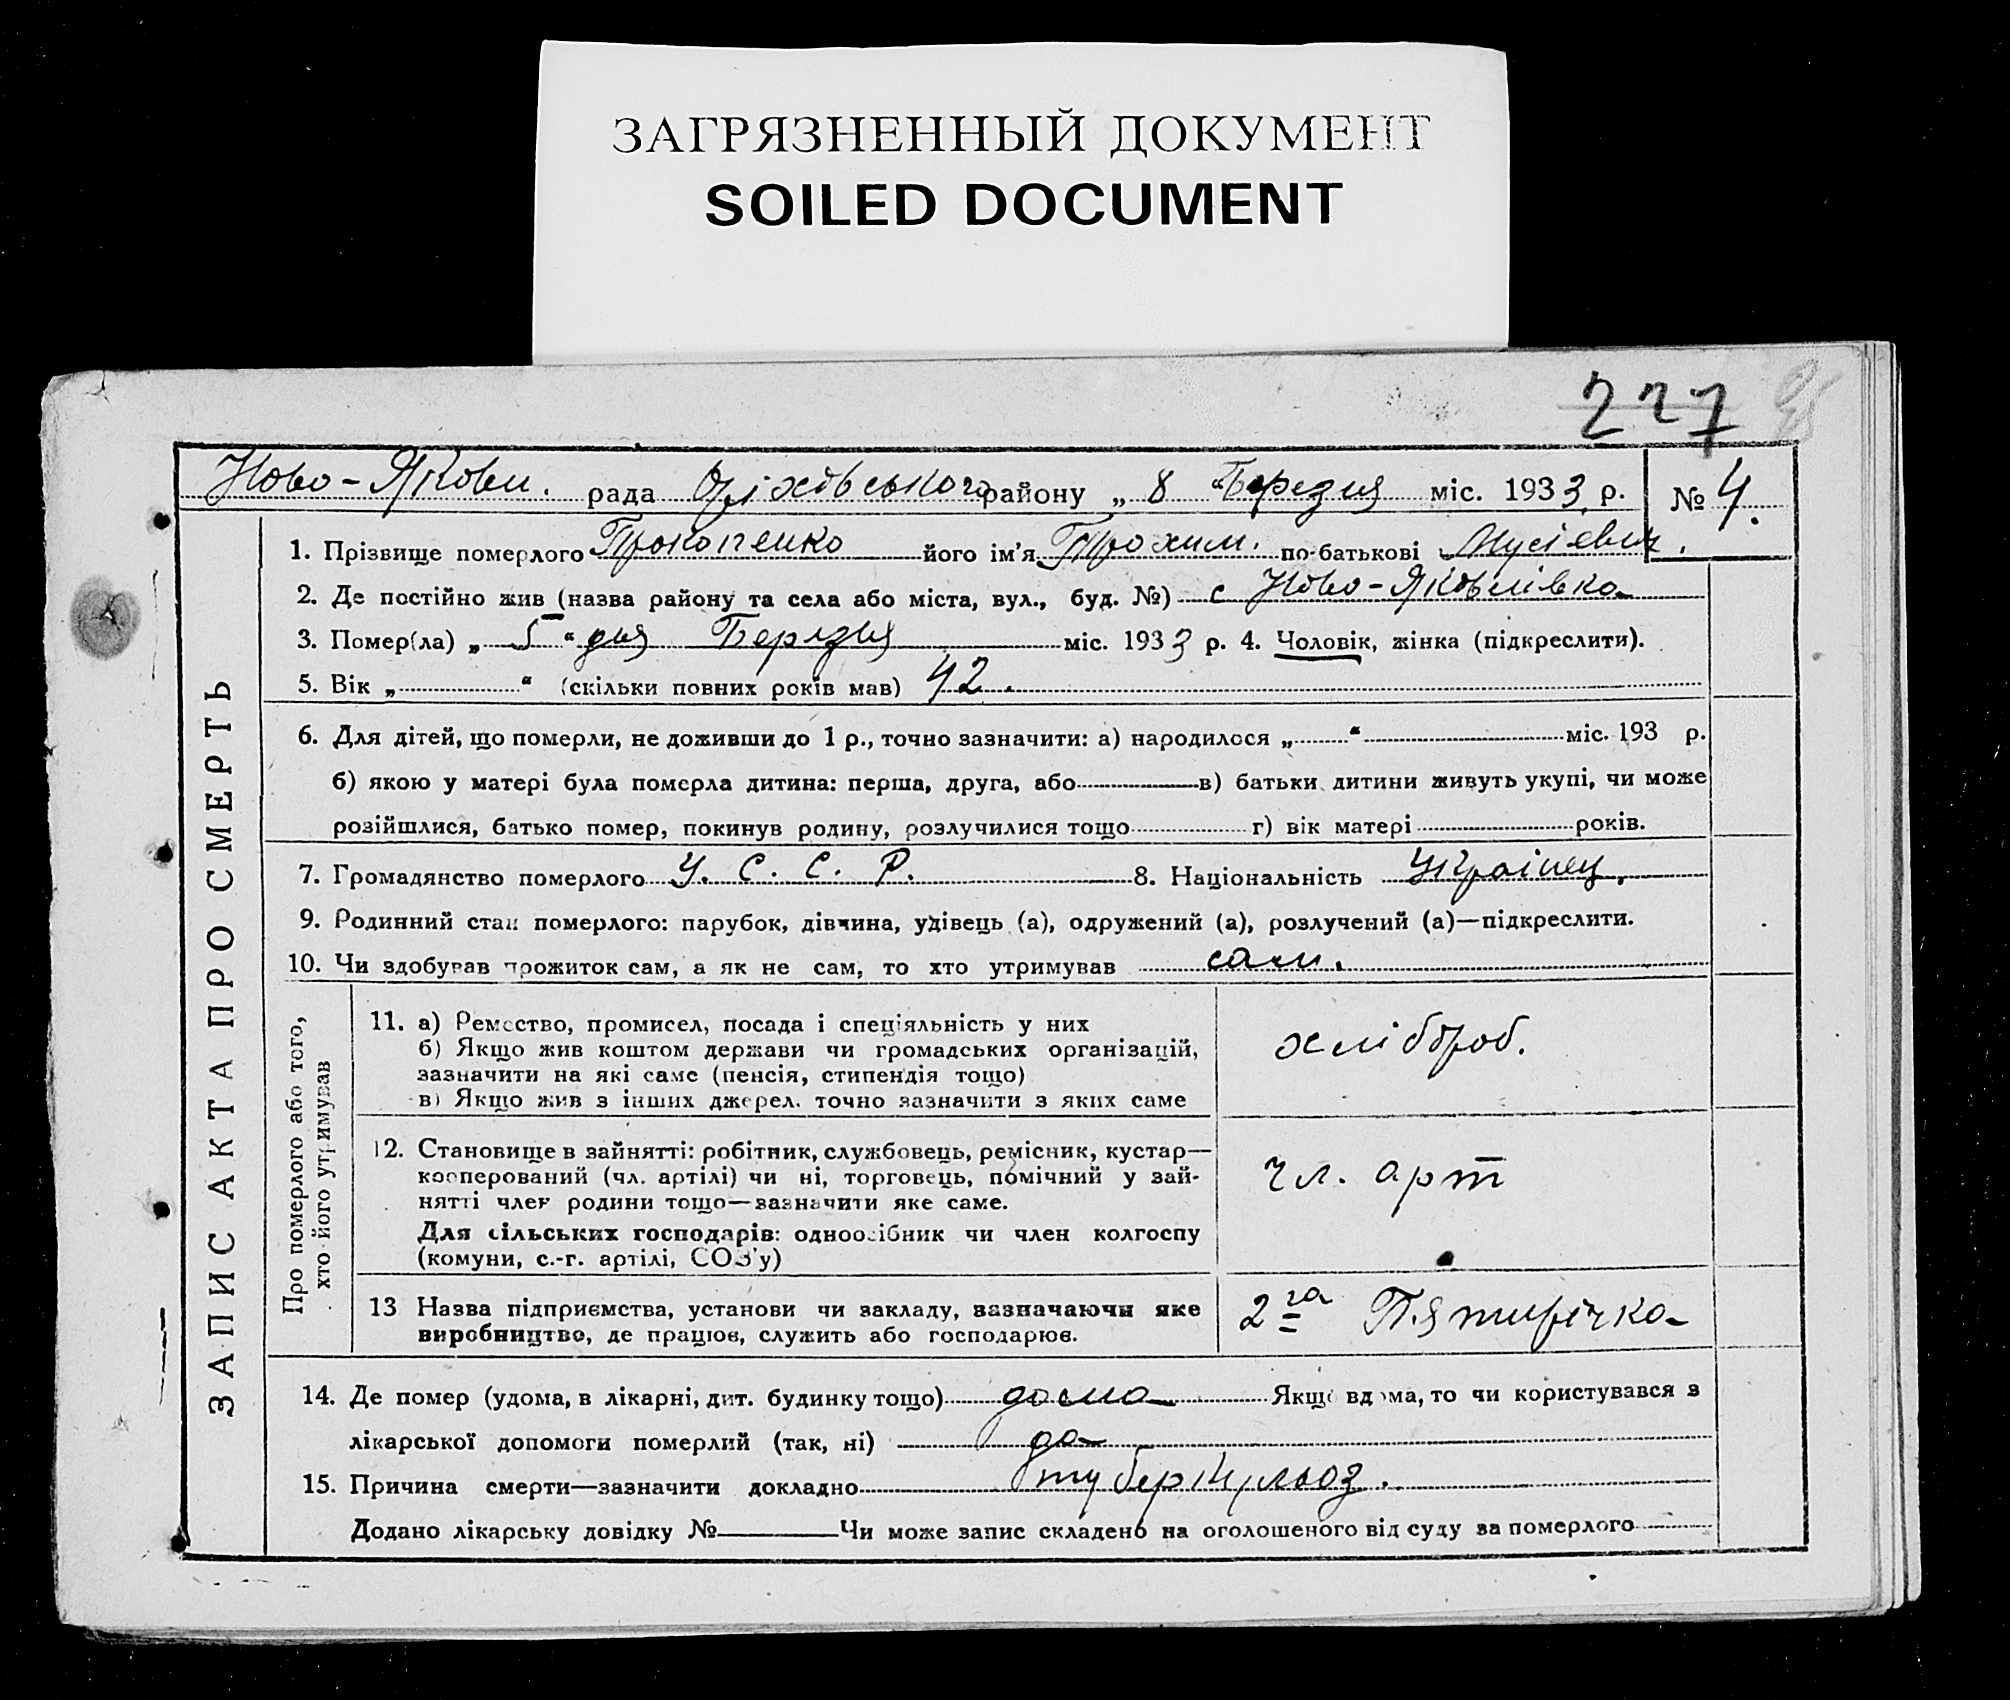 ЗАГРЯЗНЕННЫЙ ДОКУМЕНТ
SOILED DOCUMENT
227
Ново-Якови. рада Оріховського району „ 8 “ Березня міс. 1933 р. № 4.
ЗАПИС АКТА ПРО СМЕРТЬ
1. Прізвище померлого Прокопенко його ім’я Трохим. по-батькові Мусієвич.
2. Де постійно жив (назва району та села або міста, вул., буд. №) с Ново-Яковлівка
3. Помер(ла) „ 5 “ дня Березня міс. 1933 р. 4. Чоловік, жінка (підкреслити).
5. Вік „ “ (скільки повних років мав) 42.
6. Для дітей, що померли, не доживши до 1 р., точно зазначити: а) народилося „ “ міс. 193 р.
б) якою у матері була померла дитина: перша, друга, або в) батьки дитини живуть укупі, чи може
розійшлися, батько помер, покинув родину, розлучилися тощо г) вік матері років.
7. Громадянство померлого У. С. С. Р. 8. Національність Українец.
9. Родинний стан померлого: парубок, дівчина, удівець (а), одружений (а), розлучений (а)—підкреслити.
10. Чи здобував прожиток сам, а як не сам, то хто утримував сам.
Про померлого або того,
хто його утримував
11. а) Ремество, промисел, посада і спеціяльність у них
б) Якщо жив коштом держави чи громадських організацій,
зазначити на які саме (пенсія, стипендія тощо)
в) Якщо жив з інших джерел, точно зазначити з яких саме
хлібороб.
12. Становище в зайнятті: робітник, службовець, ремісник, кустар—
кооперований (чл. артілі) чи ні, торговець, помічний у зай-
нятті член родини тощо—зазначити яке саме.
Для сільських господарів: одноосібник чи член колгоспу
(комуни, с.-г. артілі, СОЗ’у)
чл. арт
13 Назва підприємства, установи чи закладу, зазначаючи яке
виробництво, де працює, служить або господарює.
2га Пятирічка
14. Де помер (удома, в лікарні, дит. будинку тощо) дома Якщо вдома, то чи користувався з
лікарської допомоги померлий (так, ні) да
15. Причина смерти—зазначити докладно туберкульоз.
Додано лікарську довідку № Чи може запис складено на оголошеного від суду за померлого